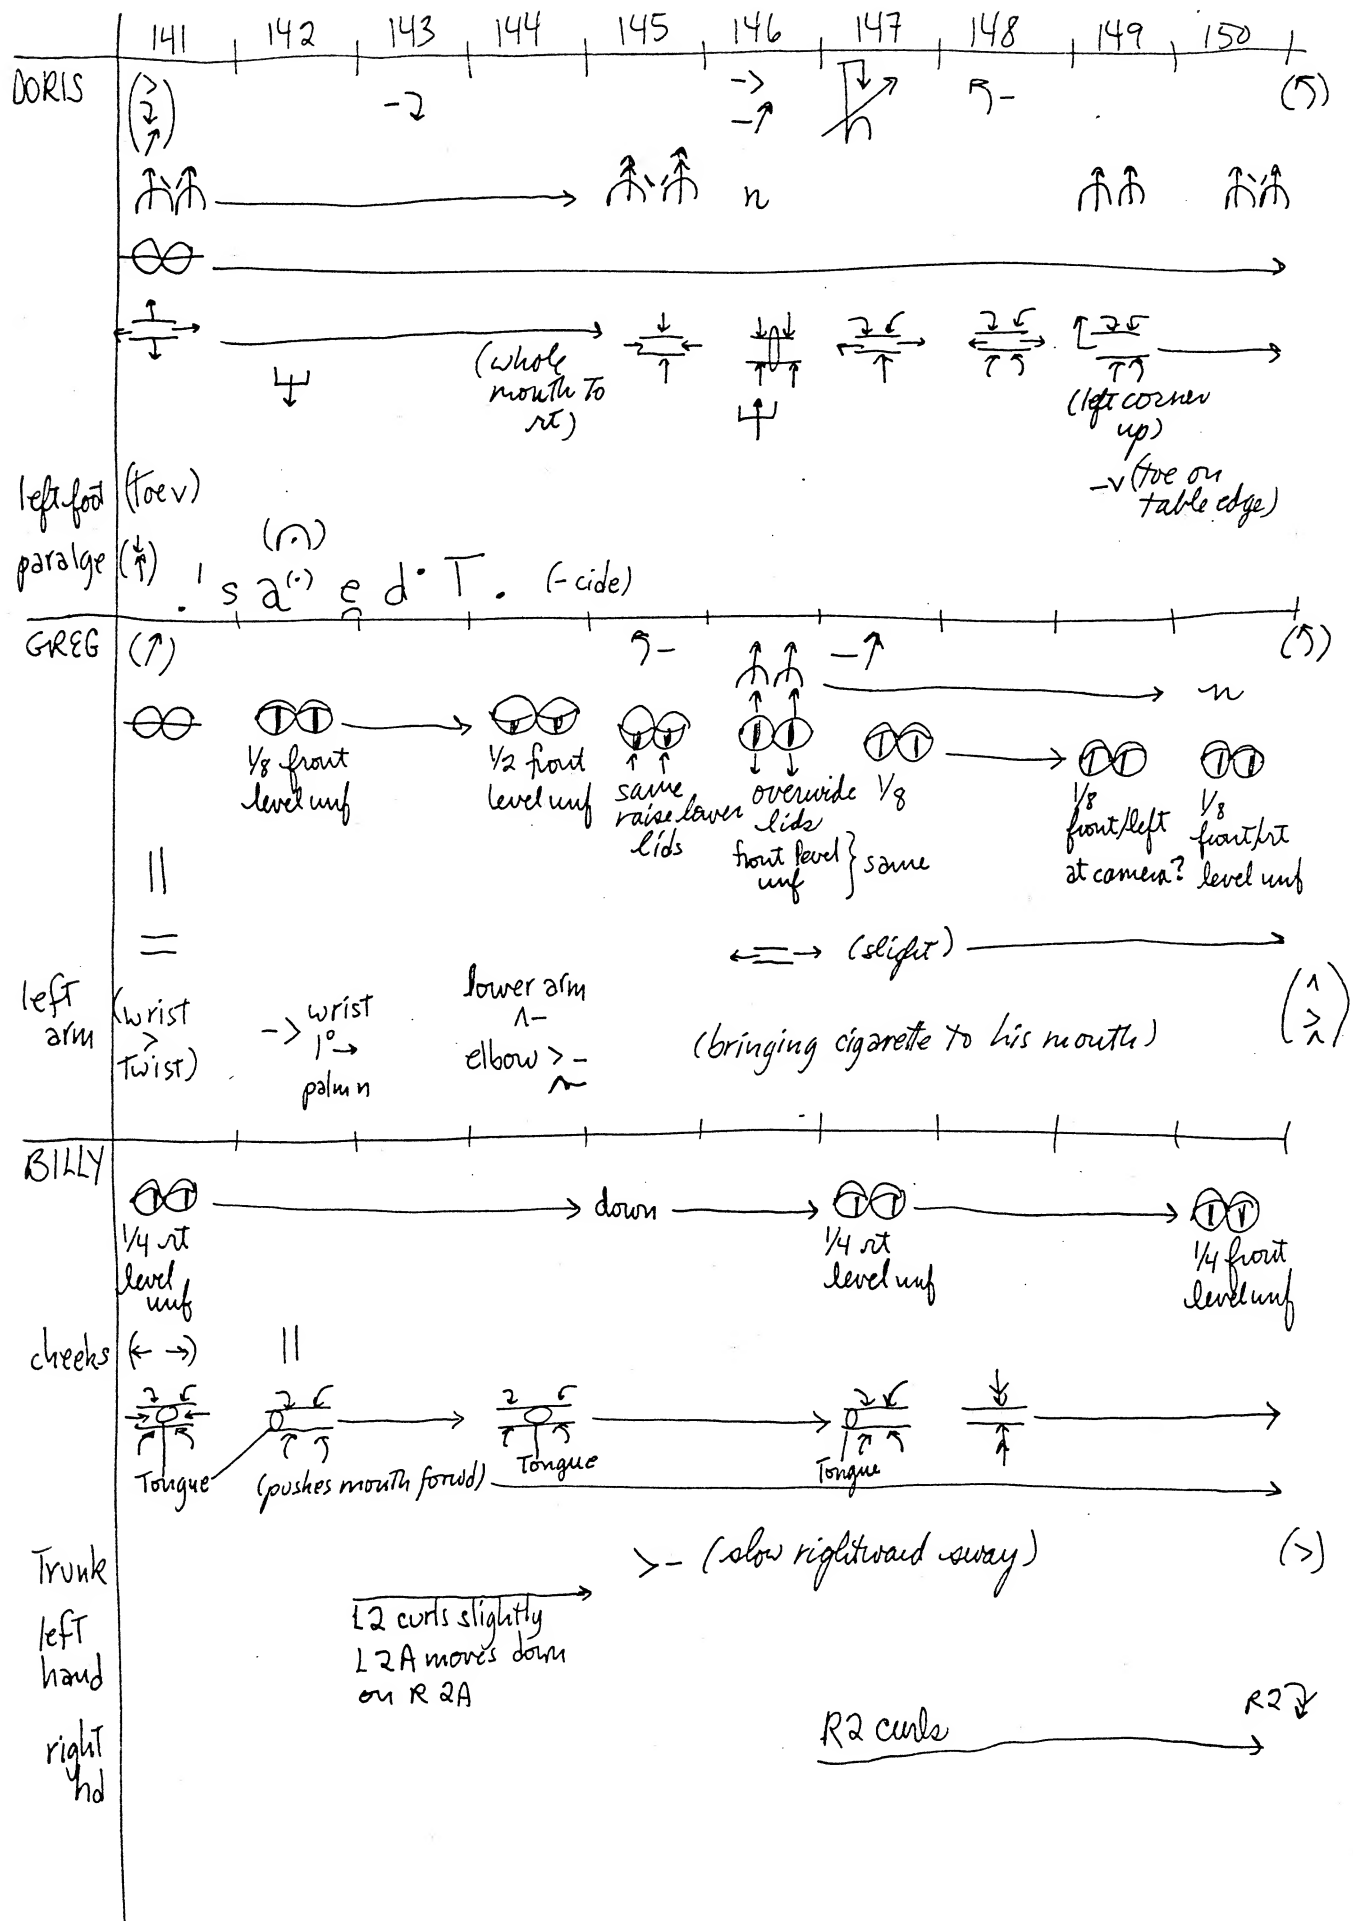 141 142 143 144 145 146 147 148 149 150
DORIS
n
(whole
mouth to
rt)
(left corner
up)
-v (toe on
table edge)
left foot (toe v)
paralge
. ' s a (·) e d · T . (-cide)
GREG
n
1/8 front
level unf
1/2 front
level unf
same
raise lower
lids
overwide
lids
front level
unf } same
1/8
1/8
front/left
at camera?
1/8
front/rt
level unf
(slight)
left
arm
(wrist
>
Twist)
-> wrist
palm n
lower arm
^-
elbow > -
(bringing cigarette to his mouth)
BILLY
1/4 rt
level
unf
down
1/4 rt
level unf
1/4 front
level unf
cheeks
Tongue
(pushes mouth forwd)
Tongue
Tongue
Trunk
>- (slow rightward sway) (>)
left
hand
L2 curls slightly
L2A moves down
on R2A
right
hd
R2 curls
R2